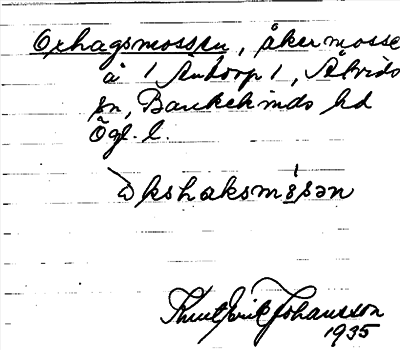 Oxhagsmossen, åkermosse
å 1 Antorp 1, Åtvids
sn, Bankekinds hd
Ögl. l.
okshaksmåsən
Knut Erik Johansson
1935